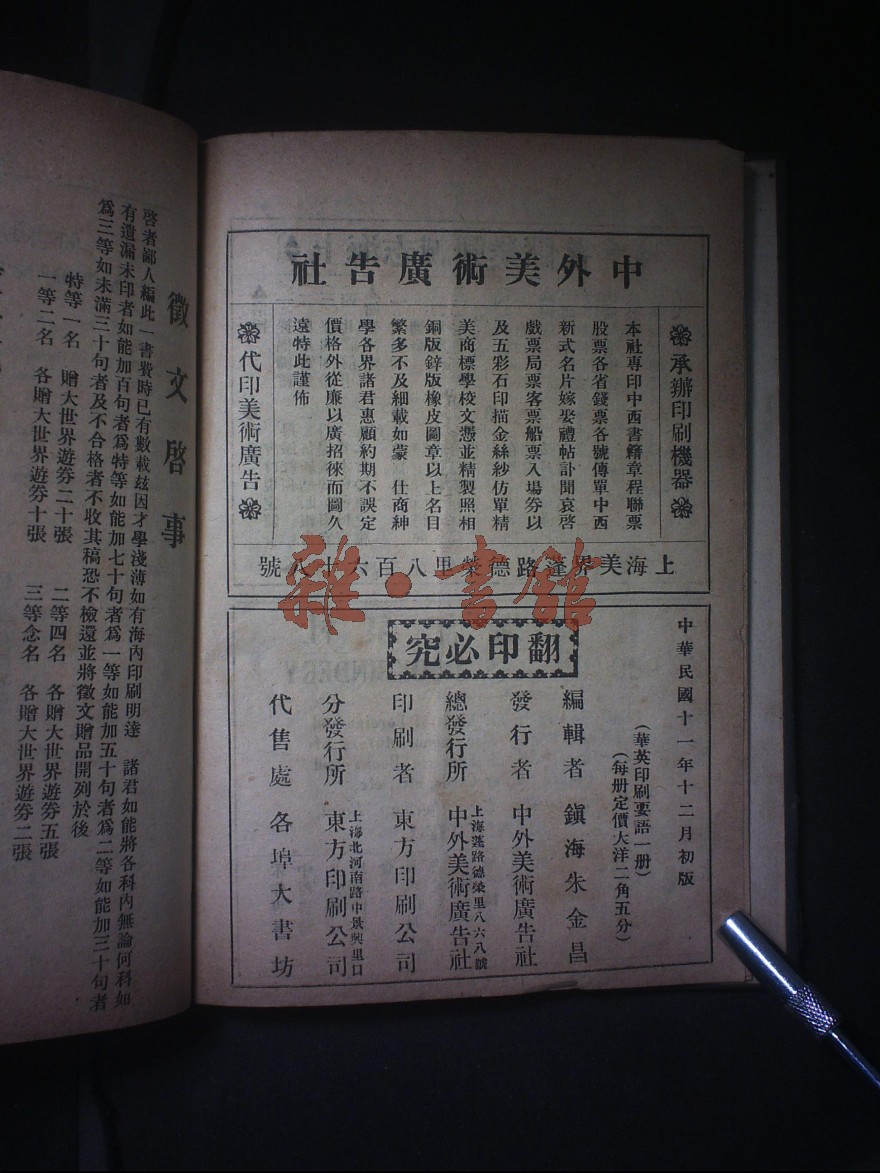 中外美術廣告社
承辦印刷機器
本社專印中西書籍章程聯票
股票各省錢票各號傳單中西
新式名片嫁娶禮帖訃聞哀啓
戲票局票客票船票入場劵以
及五彩石印描金絲紗仿單精
美商標學校文憑並精製照相
銅版鋅版橡皮圖章以上名目
繁多不及細載如蒙　仕商紳
學各界諸君惠顧約期不誤定
價格外從廉以廣招徠而圖久
遠特此謹佈
代印美術廣告
上海美界蓬路德榮里八百六十八號
中華民國十一年十二月初版
(華英印刷要語一册)
(每册定價大洋二角五分)
翻印必究
編輯者　鎭海朱金昌
發行者　中外美術廣告社
總發行所　上海蓬路德榮里八六八號　中外美術廣告社
印刷者　東方印刷公司
分發行所　上海北河南路中景興里口　東方印刷公司
代售處　各埠大書坊
徵文啓事
啓者鄙人編此一書費時已有數載玆因才學淺薄如有海內印刷明達　諸君如能將各科內無論何科如
有遺漏未印者如能加百句者爲特等如能加七十句者爲一等如能加五十句者爲二等如能加三十句者
爲三等如未滿三十句者及不合格者不收其稿恐不檢還並將徵文贈品開列於後
特等一名　贈大世界遊劵二十張　二等四名　各贈大世界遊劵五張
一等二名　各贈大世界遊劵十張　三等念名　各贈大世界遊劵二張
雜·書館